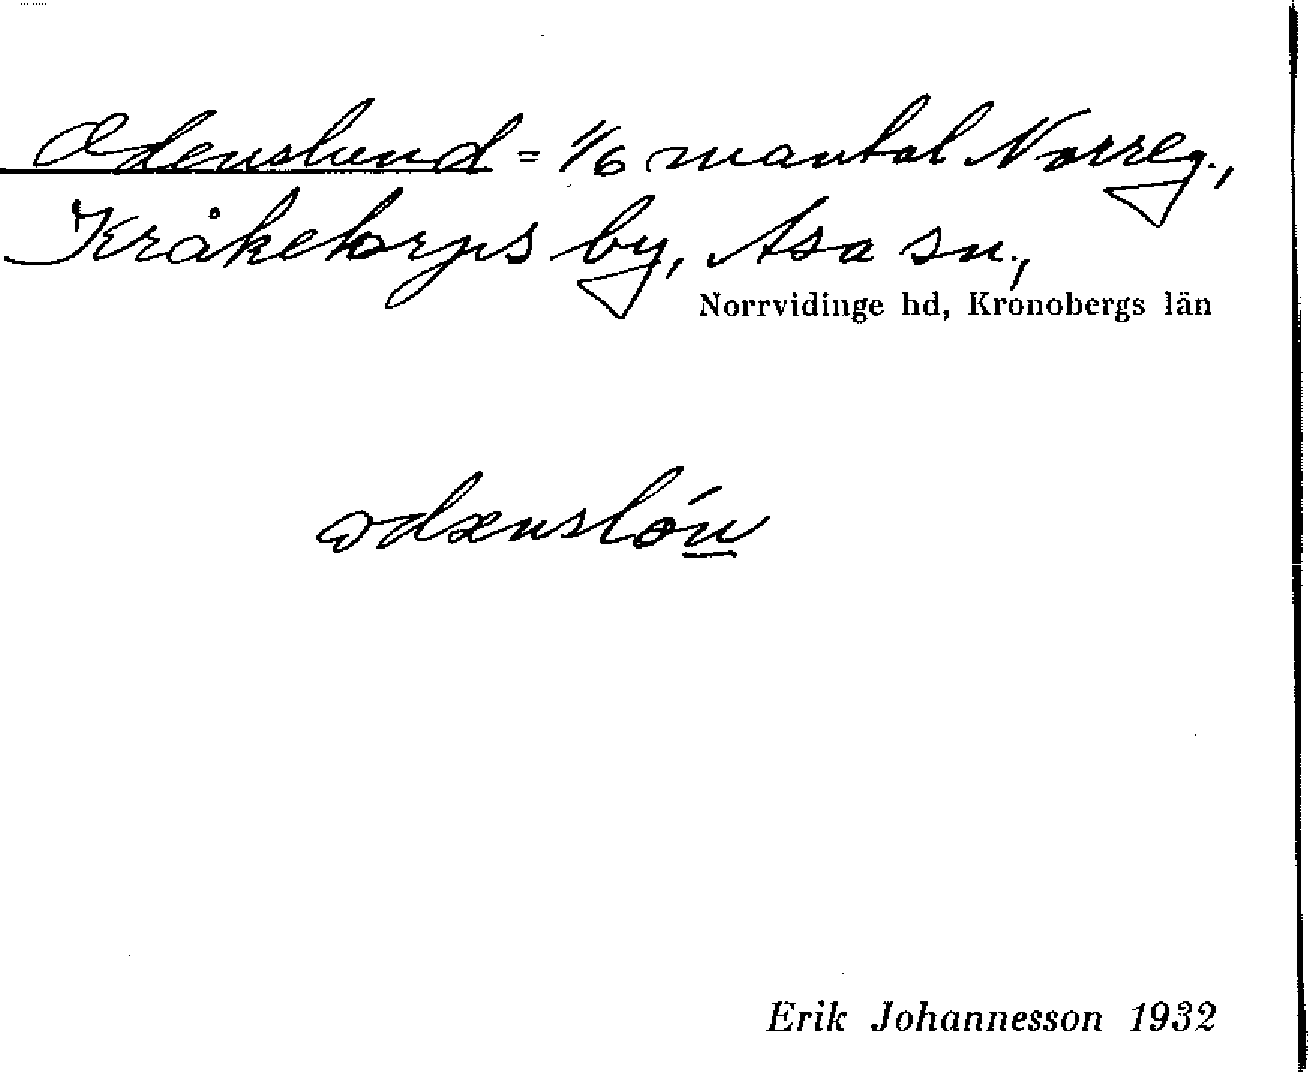 Odenslund = 1/6 mantal Norreg.,
Kråketorps by, Asa sn.,
Norrvidinge hd, Kronobergs län
odænslón
Erik Johannesson 1932